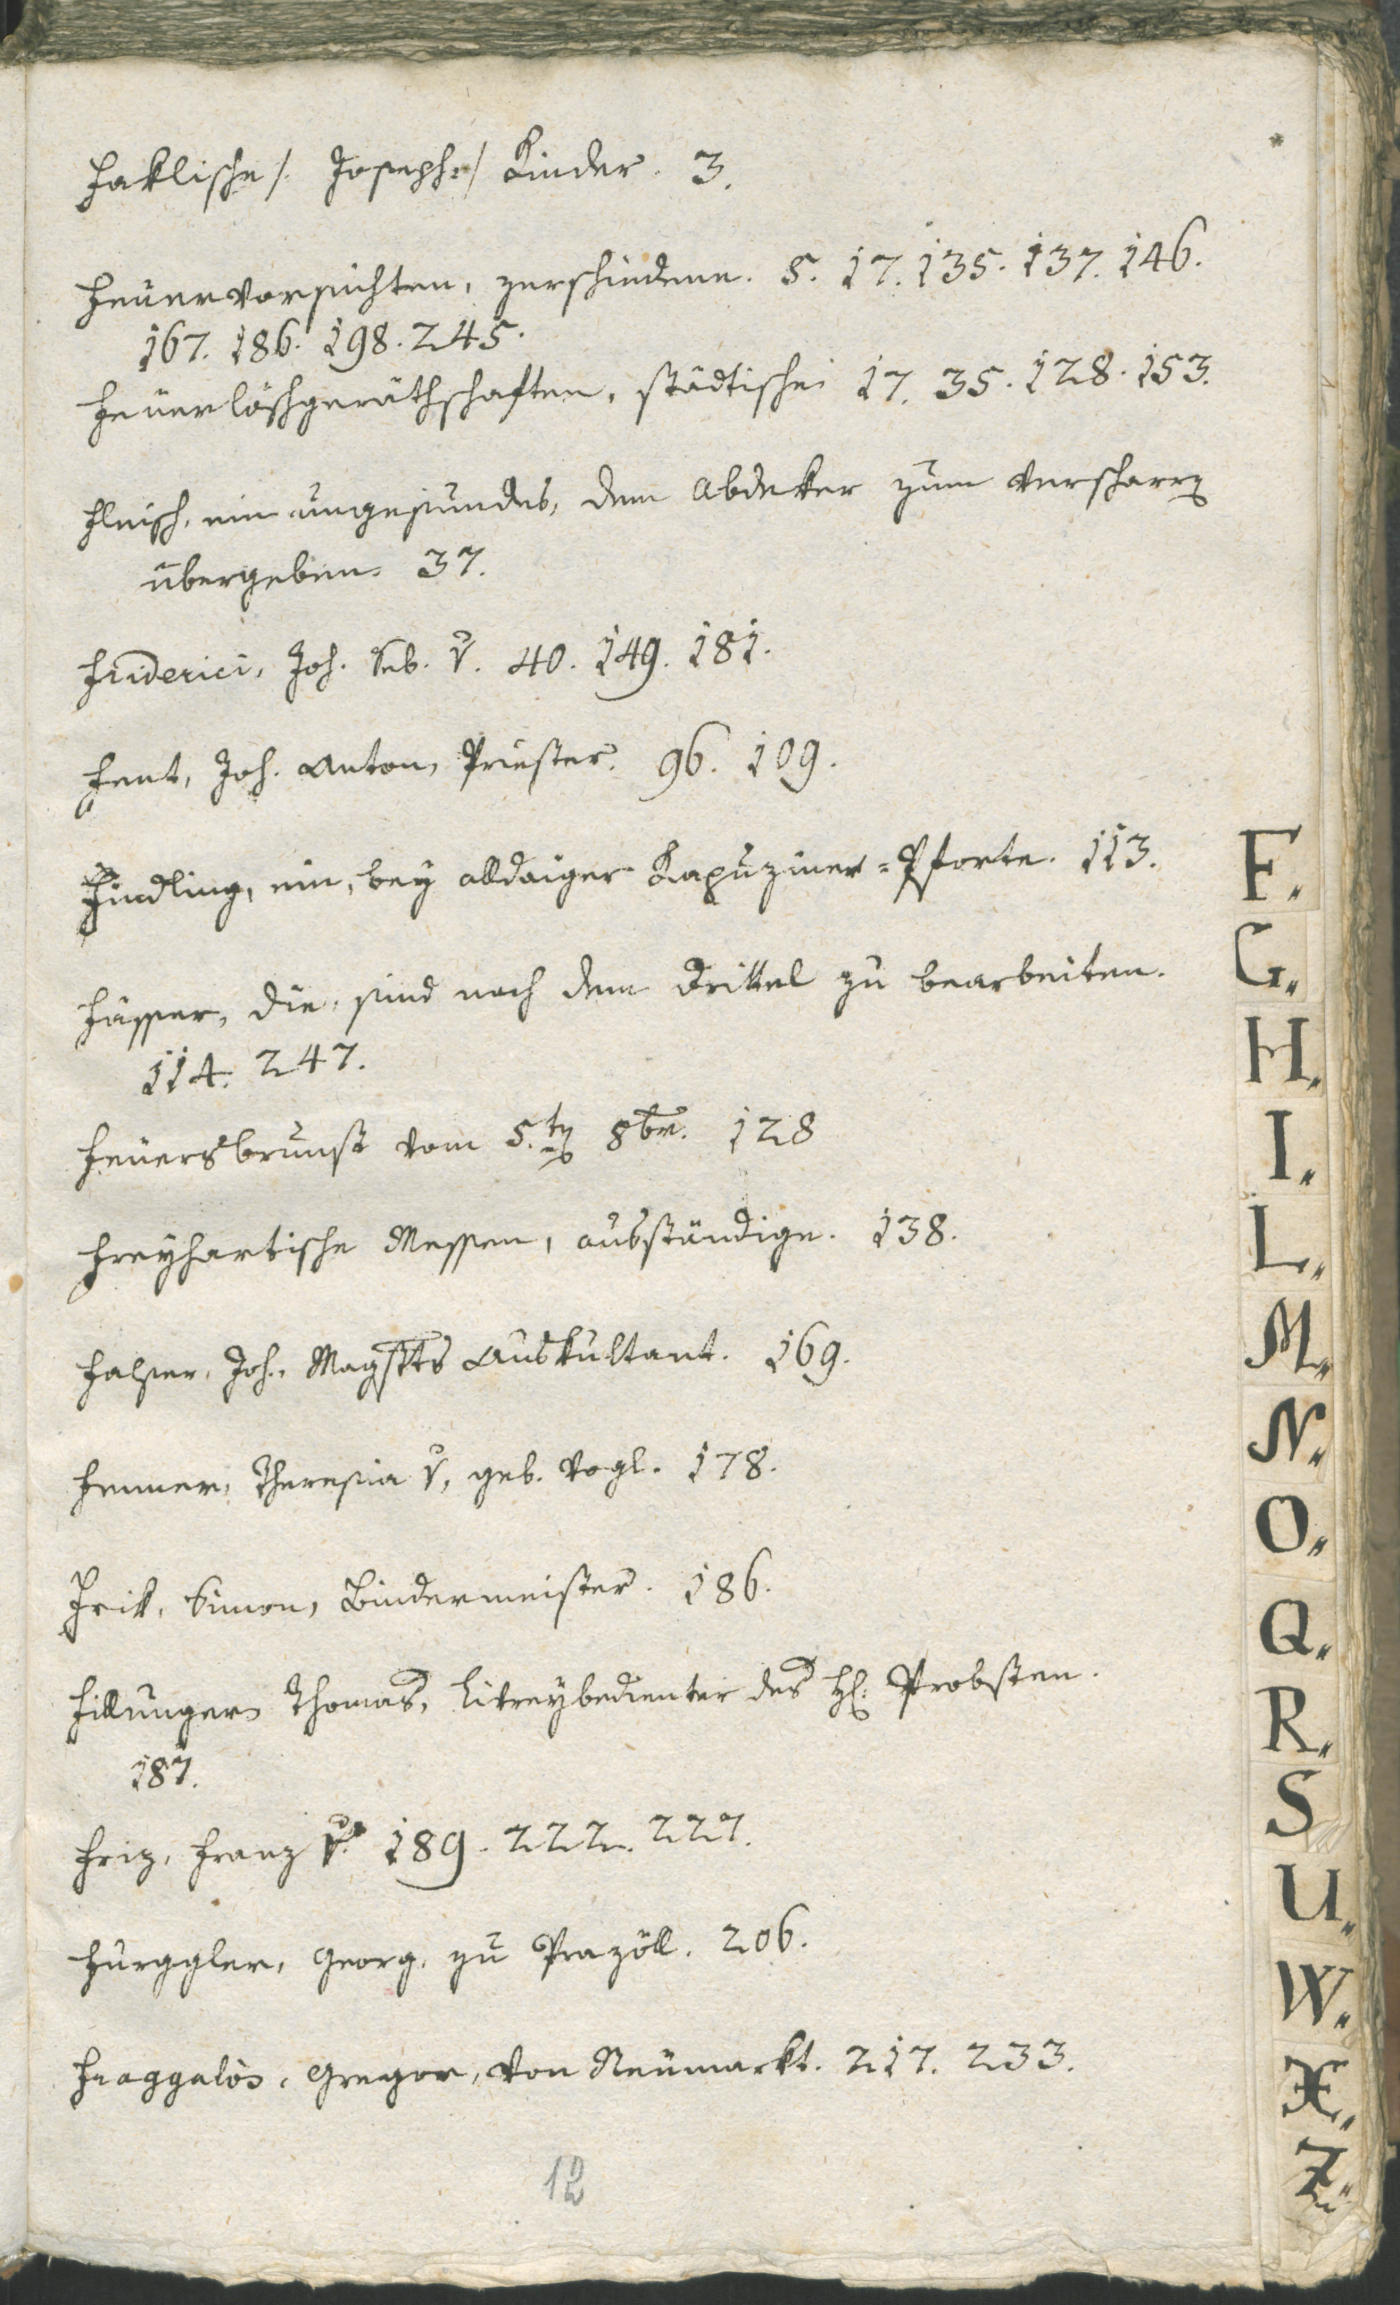 Faklische /: Joseph :/ Kinder. 3.
Feuervorsichten, zerschiedene. 5. 17. 135. 137. 146.
167. 186. 198. 245.
Feuerlöschgeräthschaften, städtische 17. 35. 128. 153.
Fleisch, ein ungesundes, dem Abdeker zum verscharren
übergeben. 37.
Friderici, Joh. Seb. v. 40. 149. 181.
Fent, Joh. Anton, Priester. 96. 109.
Findling, ein, bey alldaiger Kapuziner-Pforte. 113.
Fässer, die, sind nach dem Drittel zu bearbeiten.
114. 247.
Feuersbrunst vom 5.ten 8br. 128
Freyhartische Messen, ausständige. 138.
Falser, Joh., Magstts Auskultant. 169.
Fenner, Theresia v, geb. Vogl. 178.
Frik, Simon, Bindermeister. 186.
Fillunger, Thomas, Livreybedienter des H: Probsten.
187.
Friz, Franz v. 189. 222. 227.
Furggler, Georg, zu Prazöll. 206.
Fraggalos, Gregor, von Neumarkt. 217. 233.
12
F.
G.
H.
I.
L.
M.
N.
O.
Q.
R.
S
U.
W.
X.
Z.